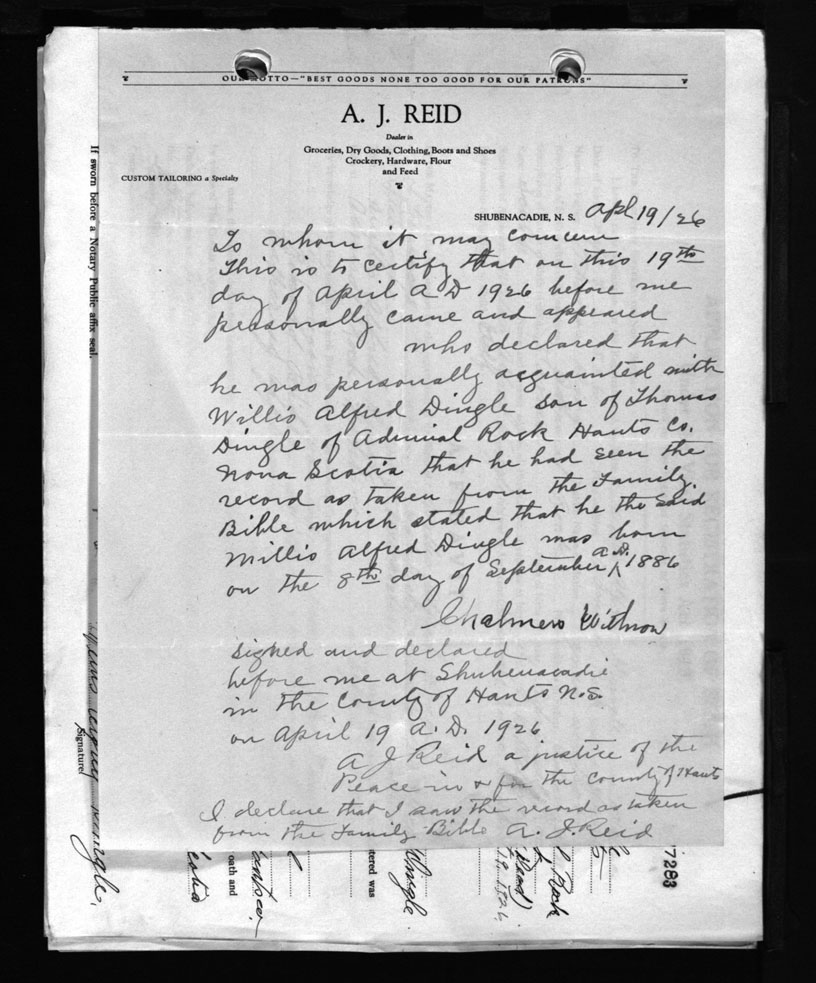 OUR MOTTO—"BEST GOODS NONE TOO GOOD FOR OUR PATRONS"
A. J. REID
Dealer in
Groceries, Dry Goods, Clothing, Boots and Shoes
Crockery, Hardware, Flour
and Feed
CUSTOM TAILORING a Specialty
SHUBENACADIE, N. S. Apl 19/26
To whom it may concern
This is to certify that on this 19th
day of April A D 1926 before me
personally came and appeared
who declared that
he was personally acquainted with
Willis Alfred Dingle son of Thomas
Dingle of Admiral Rock Hants Co.
Nova Scotia that he had seen the
record as taken from the Family
Bible which stated that he the said
Willis Alfred Dingle was born
on the 8th day of September A.D. 1886
Chalmers Withrow
signed and declared
before me at Shubenacadie
in the County of Hants N.S.
on April 19 A.D. 1926
A J Reid a justice of the
Peace in & for the County of Hants
I declare that I saw the record as taken
from the Family Bible A. J. Reid
If sworn before a Notary Public affix seal.
Signature
Dingle.
oath and
Hants co.
tered was
Dingle
Rock
7283